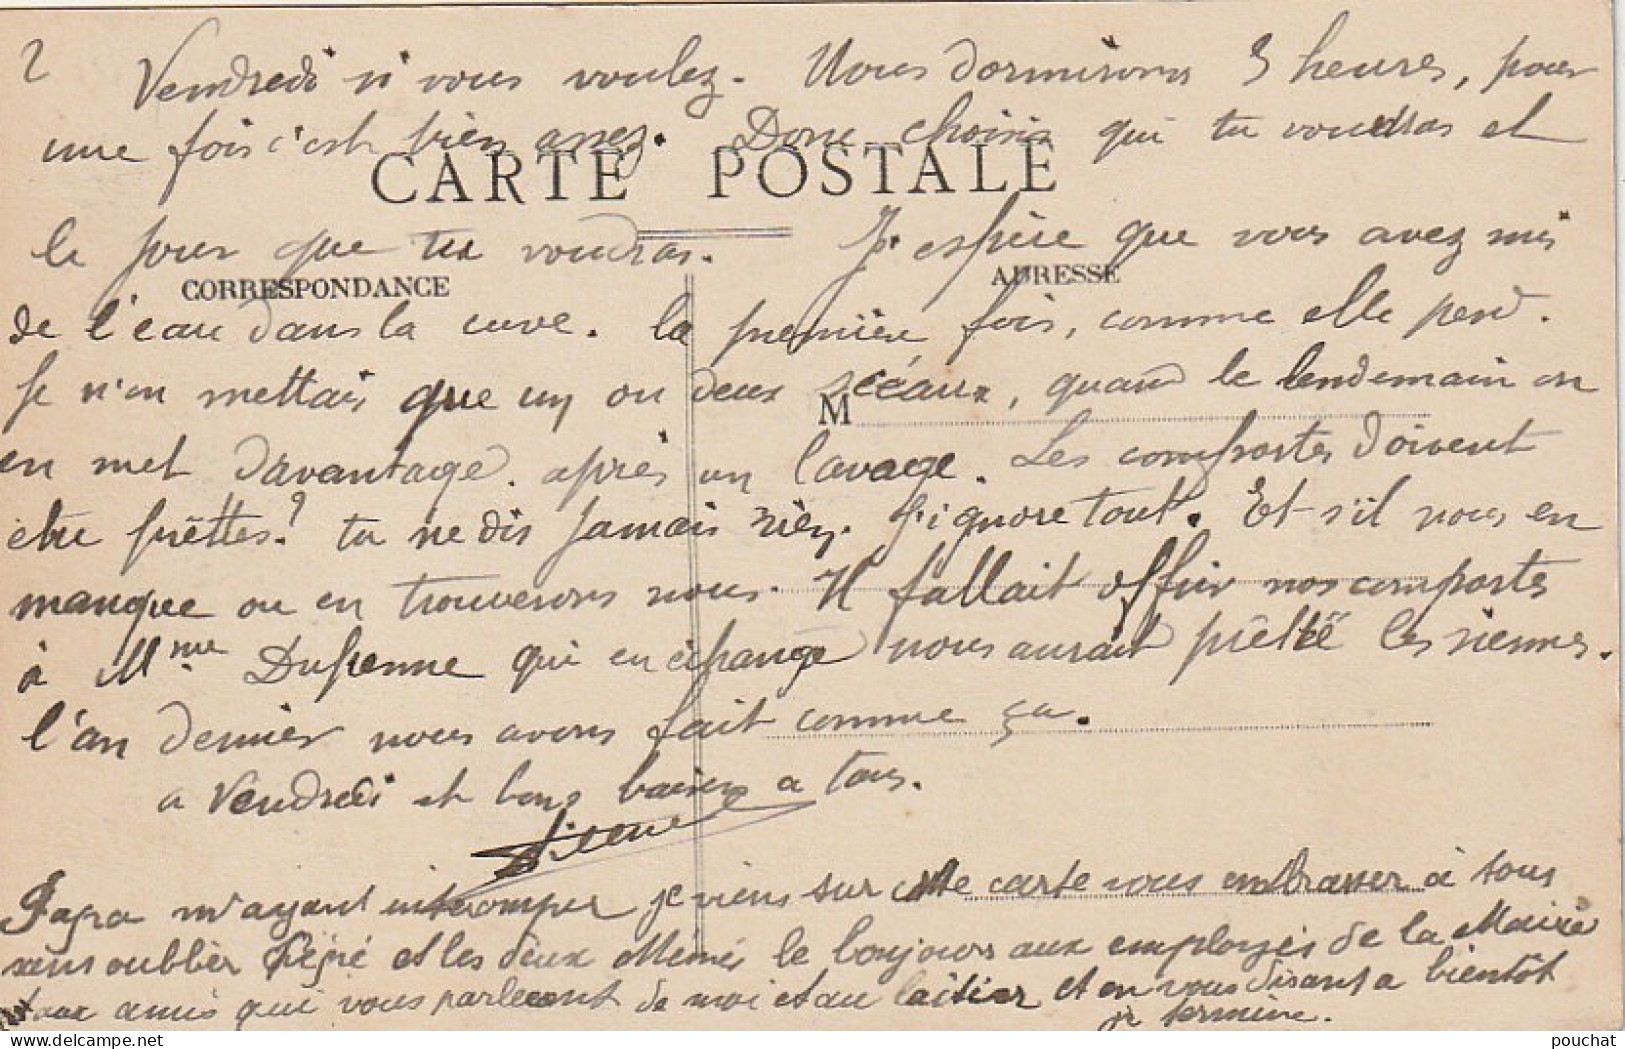 2
Vendredi si vous voulez. Nous dormirons 3 heures, pour
une fois c'est bien assez. Donc choisis qui tu voudras et
CARTE POSTALE
le jour que tu voudras. J'espère que vous avez mis
CORRESPONDANCE
ADRESSE
de l'eau dans la cuve. la première fois, comme elle perd.
Je n'en mettais que un ou deux scéaux, quand le lendemain on
M
en met davantage. après un lavage. Les comportes doivent
être prêttes? tu ne dis jamais rien. J'ignore tout. Et s'il nous en
manque ou en trouverons nous. Il fallait offrir nos comportes
à Mme Dufrenne qui en échange nous aurait prêtté les siennes.
l'an dernier nous avons fait comme ça.
a Vendredi et bons baisers a tous.
Papa m'ayant interromper je viens sur cette carte vous embrasser à tous
sans oublier Pépé et les deux Mémés le bonjours aux employés de la Mairie
et aux amis qui vous parleront de moi et au laitier et en vous disant a bientôt
je termine.
pouchat